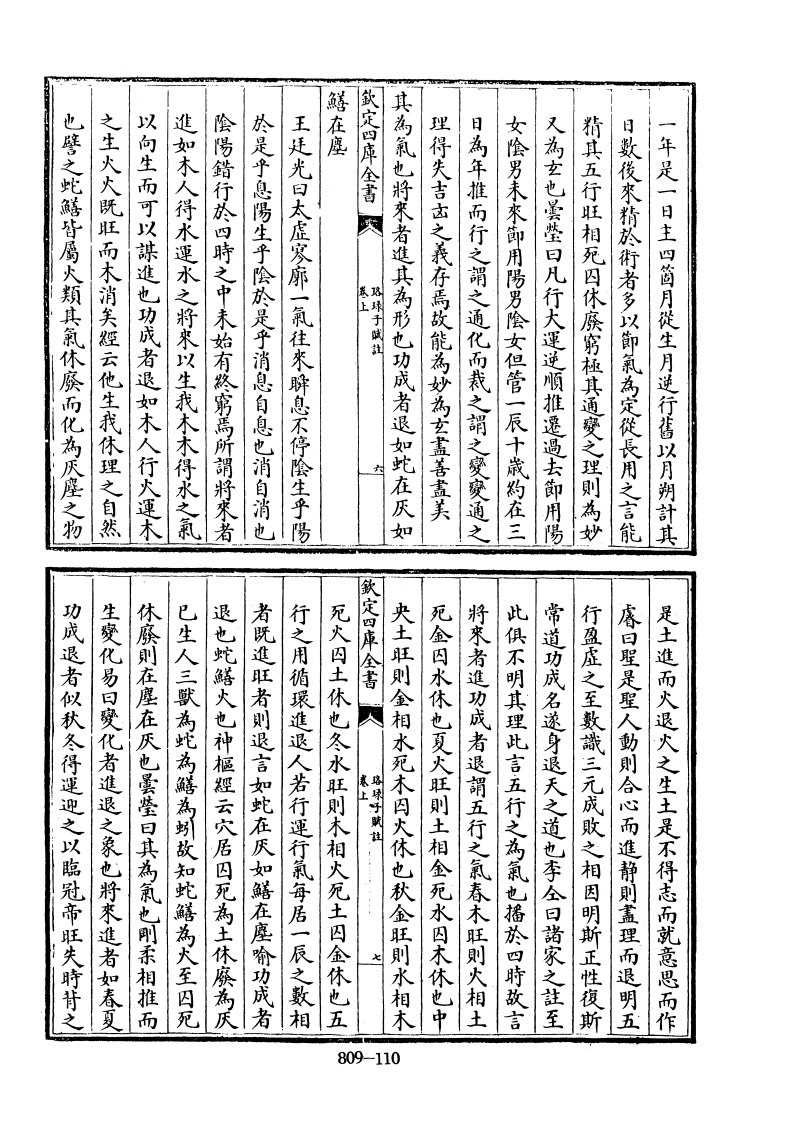 一年是一日主四箇月從生月逆行舊以月朔計其
日數後來精於術者多以節氣為定從長用之言能
精其五行旺相死囚休廢窮極其通變之理則為妙
又為玄也曇瑩曰凡行大運逆順推遷過去節用陽
女隂男未來節用陽男隂女但管一辰十歲約在三
日為年推而行之謂之通化而裁之謂之變變通之
理得失吉㐫之義存焉故能為妙為玄盡善盡美
其為氣也將來者進其為形也功成者退如蛇在灰如
欽定四庫全書
珞琭子賦註
卷上
六
鱔在塵
王廷光曰太虛寥廓一氣往來瞬息不停隂生乎陽
於是乎息陽生乎隂於是乎消息自息也消自消也
隂陽錯行於四時之中未始有終窮焉所謂將來者
進如木人得水運水之將來以生我木木得水之氣
以向生而可以謀進也功成者退如木人行火運木
之生火火既旺而木消矣經云他生我休理之自然
也譬之蛇鱔皆屬火類其氣休廢而化為灰塵之物
是土進而火退火之生土是不得志而就意思而作
睿曰聖是聖人動則合心而進静則盡理而退明五
行盈虛之至數識三元成敗之相因明斯正性復斯
常道功成名遂身退天之道也李仝曰諸家之註至
此俱不明其理此言五行之為氣也播於四時故言
將來者進功成者退謂五行之氣春木旺則火相土
死金囚水休也夏火旺則土相金死水囚木休也中
央土旺則金相水死木囚火休也秋金旺則水相木
欽定四庫全書
珞琭子賦註
卷上
七
死火囚土休也冬水旺則木相火死土囚金休也五
行之用循環進退人若行運行氣每居一辰之數相
者既進旺者則退言如蛇在灰如鱔在塵喻功成者
退也蛇鱔火也神樞經云穴居囚死為土休廢為灰
巳生人三獸為蛇為鱔為蚓故知蛇鱔為火至囚死
休廢則在塵在灰也曇瑩曰其為氣也剛柔相推而
生變化易曰變化者進退之象也將來進者如春夏
功成退者似秋冬得運迎之以臨冠帝旺失時背之
809—110